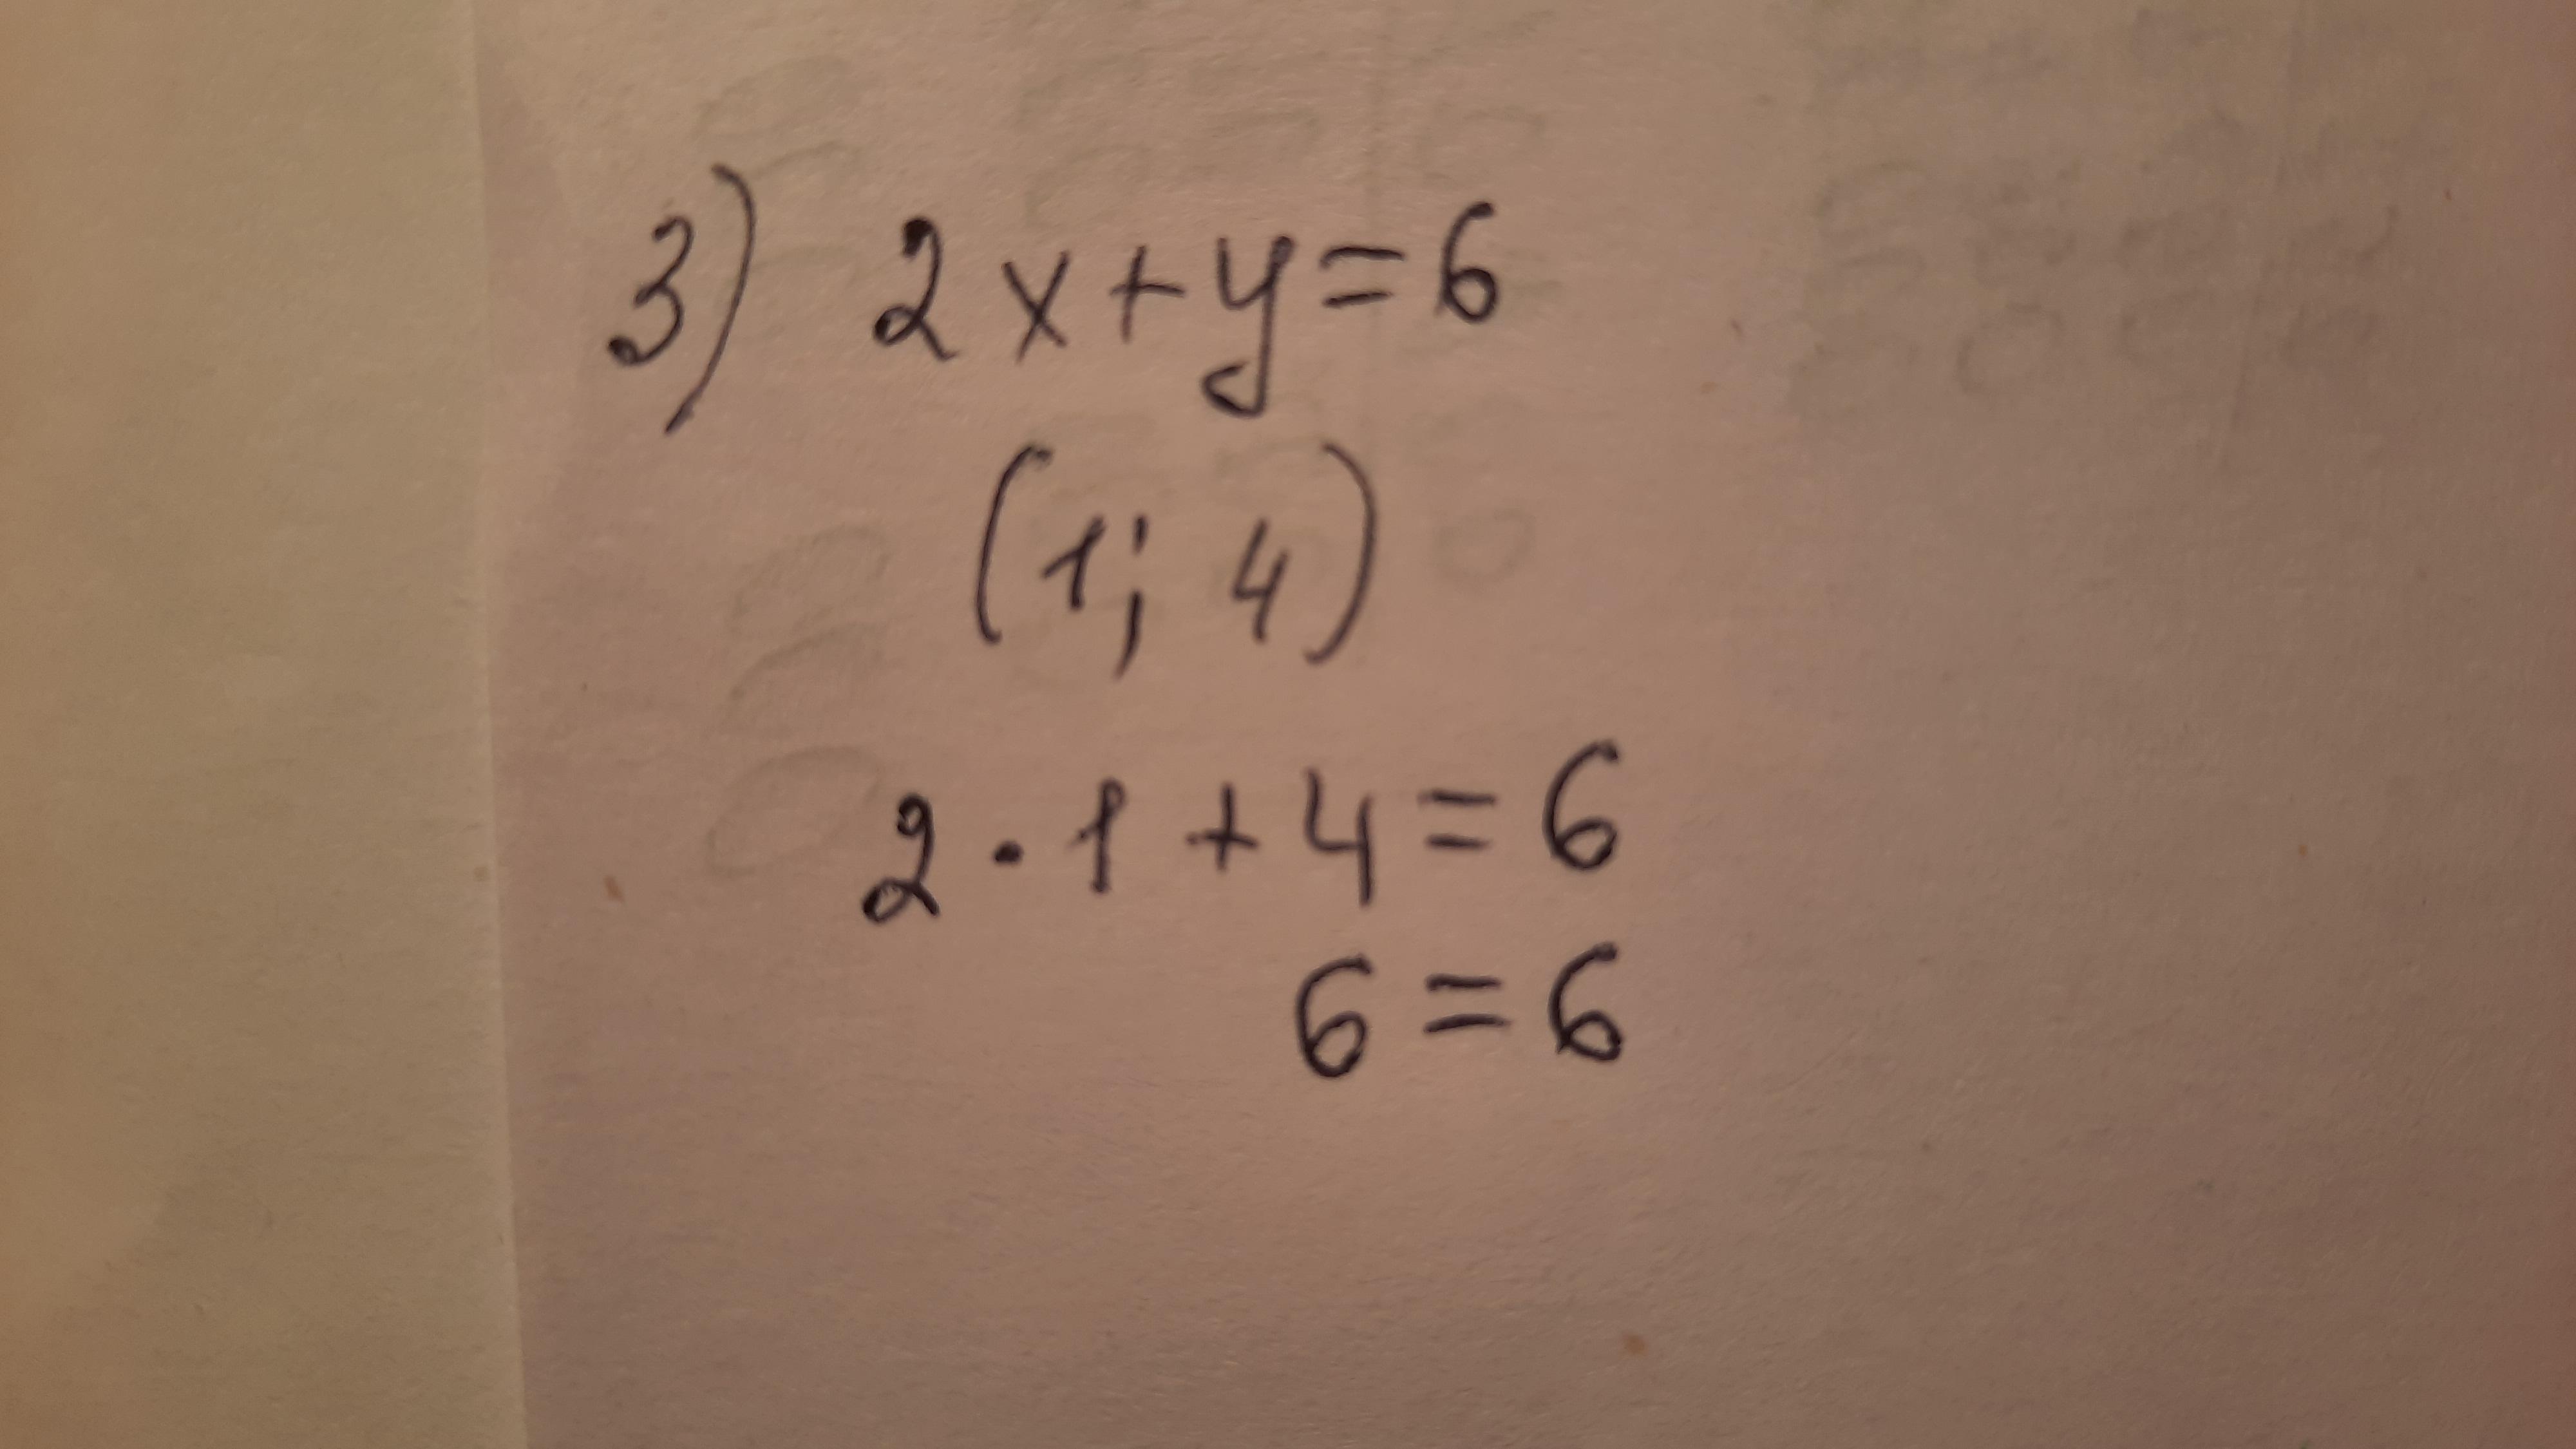 3) 2x+y=6
(1; 4)
2 · 1 + 4 = 6
6 = 6